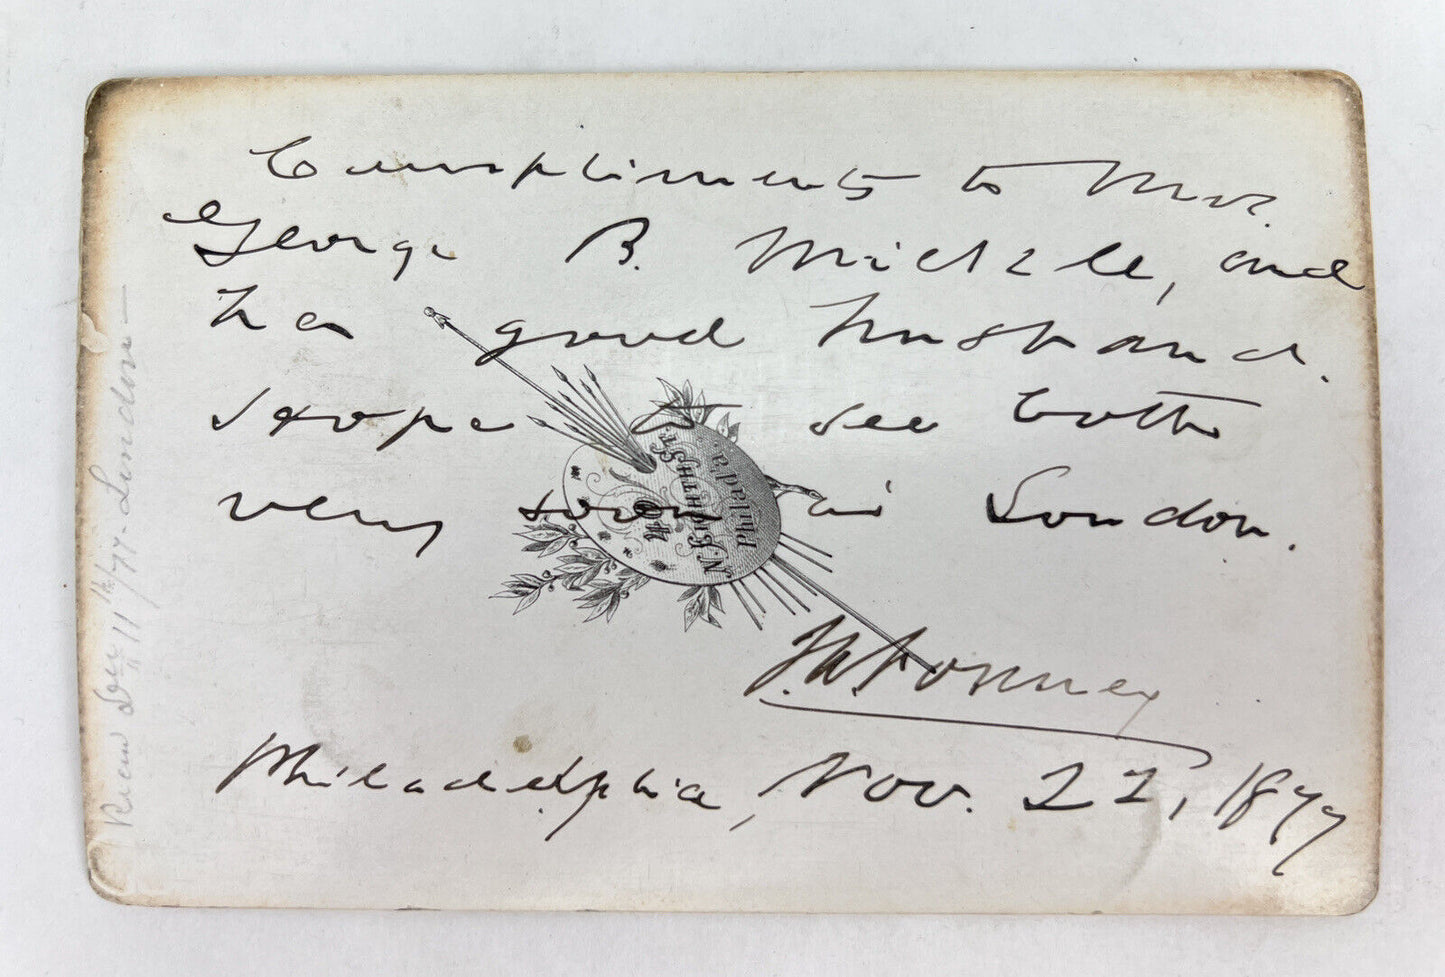 Compliments to Mrs.
George B. Mickle, and
her good husband.
I hope to see both
very soon in London.
J. W. Forney
Philadelphia, Nov. 22, 1877
40
N. Eighth St.
Philad'a.
Dec 11th/77 - London -